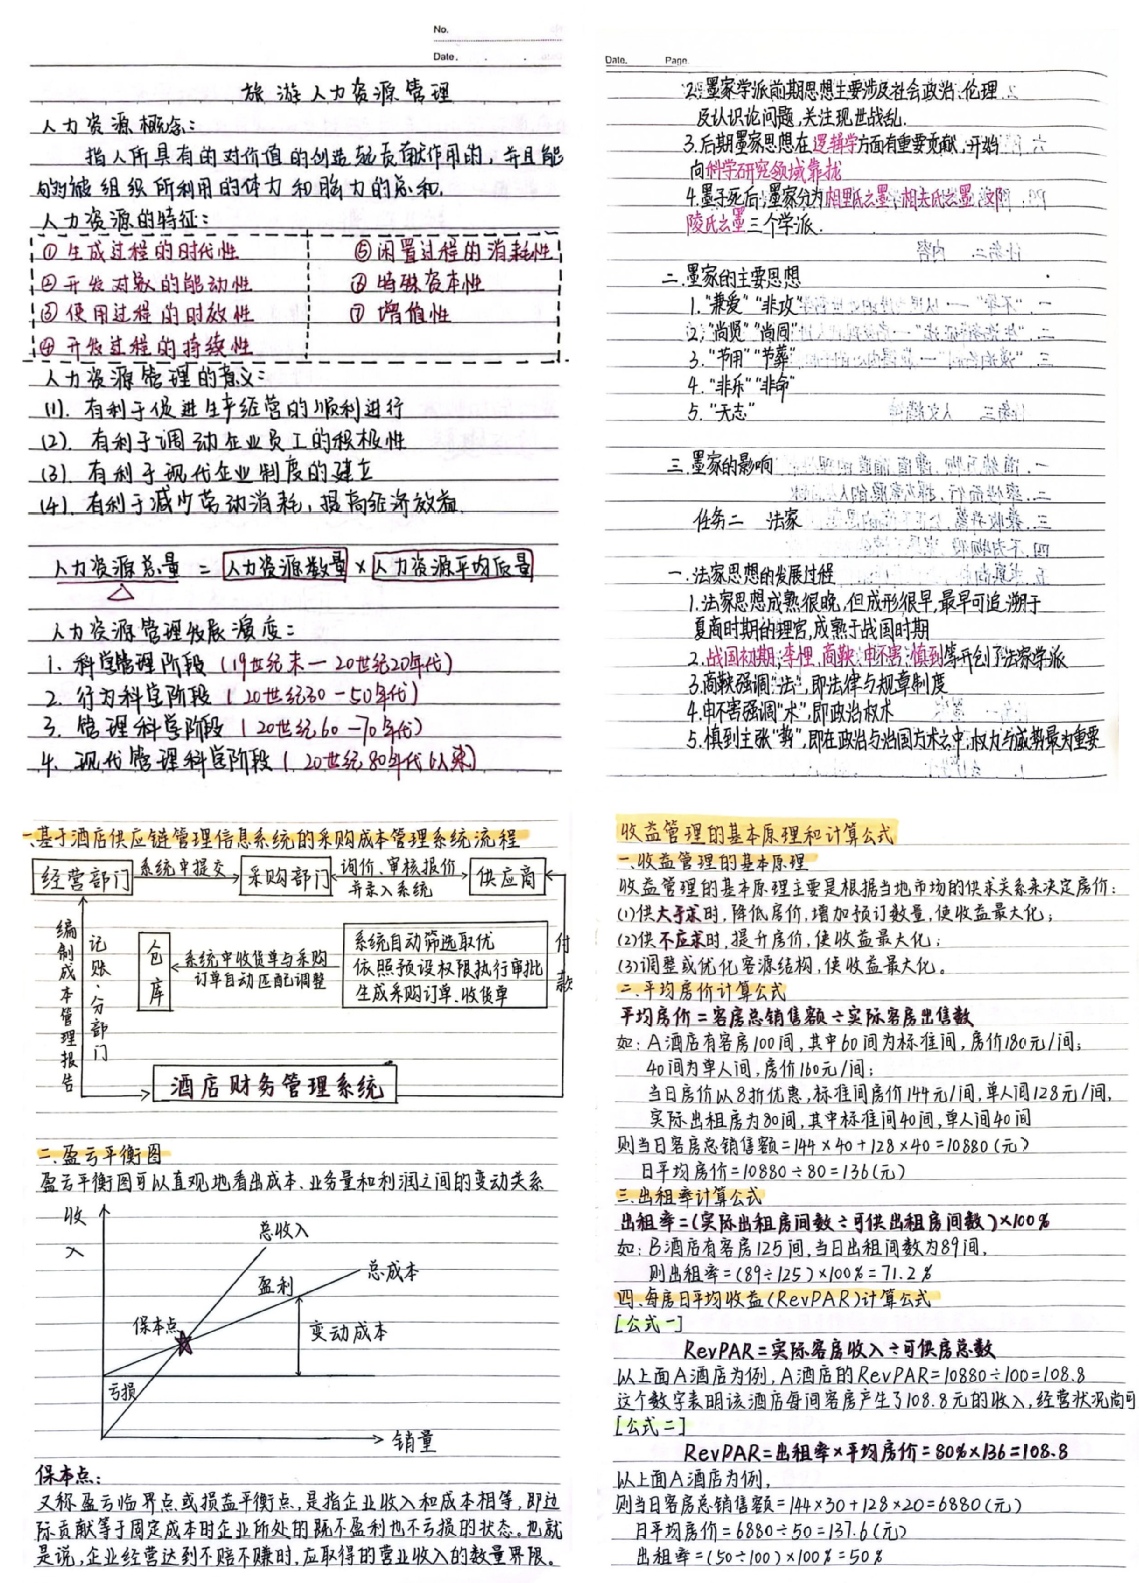 No.
Date.
旅游人力资源管理
人力资源概念:
指人所具有的对价值的创造起贡献作用的,并且能
够被组织所利用的体力和脑力的总和.
人力资源的特征:
①生成过程的时代性
②开发对象的能动性
③使用过程的时效性
④开发过程的持续性
⑤闲置过程的消耗性
⑥特殊资本性
⑦增值性
人力资源管理的意义:
(1).有利于促进生产经营的顺利进行
(2).有利于调动企业员工的积极性
(3).有利于现代企业制度的建立
(4).有利于减少劳动消耗,提高经济效益.
人力资源总量=人力资源数量×人力资源平均质量
人力资源管理发展演变:
1.科学管理阶段(19世纪末一20世纪20年代)
2.行为科学阶段(20世纪30-50年代)
3.管理科学阶段(20世纪60-70年代)
4.现代管理科学阶段(20世纪80年代以来)
Date. Page.
2.墨家学派前期思想主要涉及社会政治、伦理
及认识论问题,关注现世战乱.
3.后期墨家思想在逻辑学方面有重要贡献,开始
向科学研究领域靠拢
4.墨子死后,墨家分为相里氏之墨,相夫氏之墨,邓
陵氏之墨三个学派.
二.墨家的主要思想
1."兼爱""非攻"
2."尚贤""尚同"
3."节用""节葬"
4."非乐""非命"
5."天志"
三.墨家的影响
任务二 法家
一.法家思想的发展过程
1.法家思想成熟很晚,但成形很早,最早可追溯于
夏商时期的理官,成熟于战国时期
2.战国初期,李悝,商鞅,申不害,慎到等开创了法家学派
3.商鞅强调"法",即法律与规章制度
4.申不害强调"术",即政治权术
5.慎到主张"势",即在政治与治国方术之中,权力与威势最为重要
一.基于酒店供应链管理信息系统的采购成本管理系统流程
经营部门 系统中提交 采购部门 询价、审核报价 并录入系统 供应商
编制成本管理报告
记账·分部门
仓库
系统中收货单与采购
订单自动匹配调整
系统自动筛选取优
依照预设权限执行审批
生成采购订单、收货单
付款
酒店财务管理系统
二.盈亏平衡图
盈亏平衡图可以直观地看出成本、业务量和利润之间的变动关系
收入
总收入
总成本
盈利
保本点
变动成本
亏损
销量
保本点:
又称盈亏临界点或损益平衡点,是指企业收入和成本相等,即边
际贡献等于固定成本时企业所处的既不盈利也不亏损的状态。也就
是说,企业经营达到不赔不赚时,应取得的营业收入的数量界限。
收益管理的基本原理和计算公式
一.收益管理的基本原理
收益管理的基本原理主要是根据当地市场的供求关系来决定房价:
(1)供大于求时,降低房价,增加预订数量,使收益最大化;
(2)供不应求时,提升房价,使收益最大化;
(3)调整或优化客源结构,使收益最大化。
二.平均房价计算公式
平均房价=客房总销售额÷实际客房出售数
如:A酒店有客房100间,其中60间为标准间,房价180元/间;
40间为单人间,房价160元/间;
当日房价以8折优惠,标准间房价144元/间,单人间128元/间,
实际出租房为80间,其中标准间40间,单人间40间
则当日客房总销售额=144×40+128×40=10880(元)
日平均房价=10880÷80=136(元)
三.出租率计算公式
出租率=(实际出租房间数÷可供出租房间数)×100%
如:B酒店有客房125间,当日出租间数为89间,
则出租率=(89÷125)×100%=71.2%
四.每房日平均收益(RevPAR)计算公式
[公式一]
RevPAR=实际客房收入÷可供房总数
以上面A酒店为例,A酒店的RevPAR=10880÷100=108.8
这个数字表明该酒店每间客房产生了108.8元的收入,经营状况尚可
[公式二]
RevPAR=出租率×平均房价=80%×136=108.8
以上面A酒店为例,
则当日客房总销售额=144×30+128×20=6880(元)
日平均房价=6880÷50=137.6(元)
出租率=(50÷100)×100%=50%